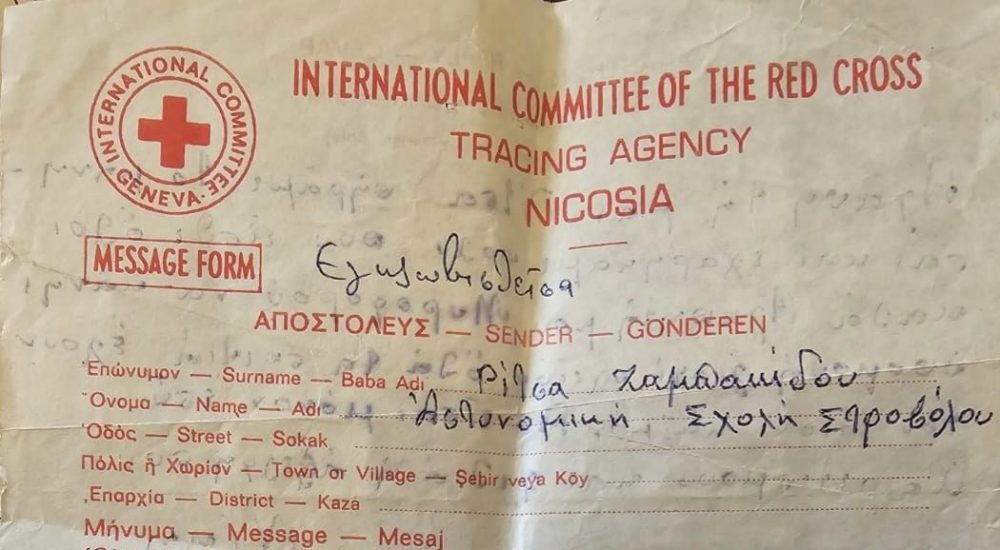 INTERNATIONAL COMMITTEE GENEVA
INTERNATIONAL COMMITTEE OF THE RED CROSS
TRACING AGENCY
NICOSIA
MESSAGE FORM
Εγκλωβισθεῖσα
ΑΠΟΣΤΟΛΕΥΣ — SENDER — GÖNDEREN
Ἐπώνυμον — Surname — Baba Adi Ρίτσα Ζαμπακίδου
Ὄνομα — Name — Adi Ἀστυνομική Σχολή Στροβόλου
Ὁδός — Street — Sokak
Πόλις ἤ Χωρίον — Town or Village — Şehir veya Köy
Ἐπαρχία — District — Kaza
Μήνυμα — Message — Mesaj